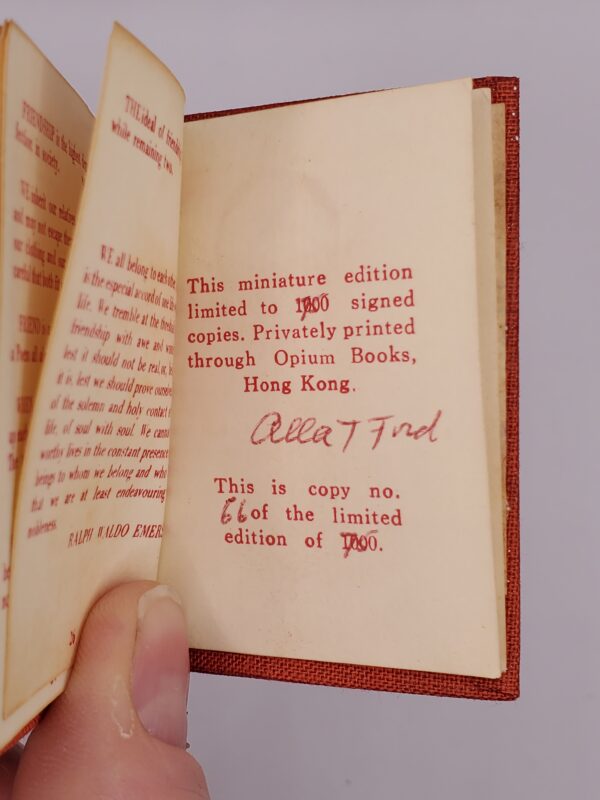 FRIENDSHIP is the highest
in society.
WE inherit our relatives
and may not escape
our clothing and our
careful that both fit
FRIEND is
a Poem
THE ideal of
while remaining two.
WE all belong to each other
is the especial accord of one
life. We tremble at the
friendship with awe and
lest it should not be real, or,
it is, lest we should prove
of the solemn and holy contact
life, of soul with soul. We
worthy lives in the constant presence
beings to whom we belong and who
that we are at least endeavouring
nobleness.
RALPH WALDO
This miniature edition
limited to signed
copies. Privately printed
through Opium Books,
Hong Kong.
Alla T Ford
This is copy no.
66 of the limited
edition of